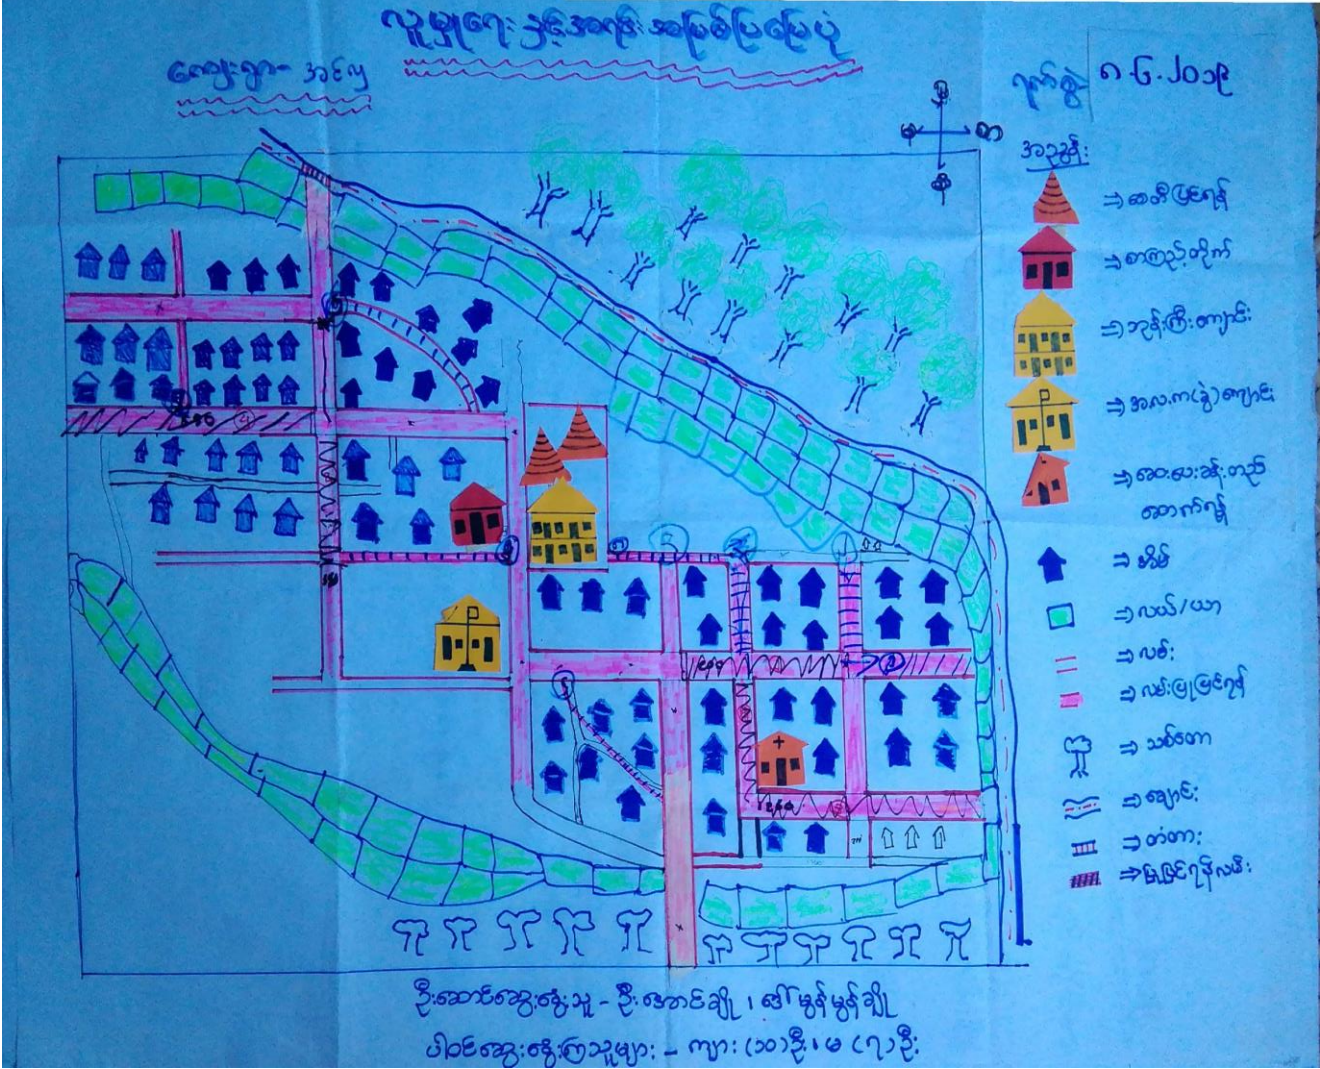 လူမှုရေး နှင့်အရင်းအမြစ်ပြမြေပုံ
ကျေးရွာ-
ရက်စွဲ ၈.၆.၂၀၁၉
အညွှန်း
⇒ စေတီပြင်ရန်
⇒ စာကြည့်တိုက်
⇒ ဘုန်းကြီးကျောင်း
⇒ အလ.က(ခွဲ)ကျောင်း
⇒ ဆေးပေးခန်းတည်
ဆောက်ရန်
⇒ အိမ်
⇒ လယ်/ယာ
⇒ လမ်း
⇒ လမ်းပြုပြင်ရန်
⇒ သစ်တော
⇒ ချောင်း
⇒ တံတား
⇒ ပြုပြင်ရန်လမ်း
ဦးဆောင်ဆွေးနွေးသူ - ဦးအောင်ချို ၊ ဒေါ်မွန်မွန်ချို
ပါဝင်ဆွေးနွေးကြသူများ - ကျား (၁၀)ဦး၊ မ (၇)ဦး